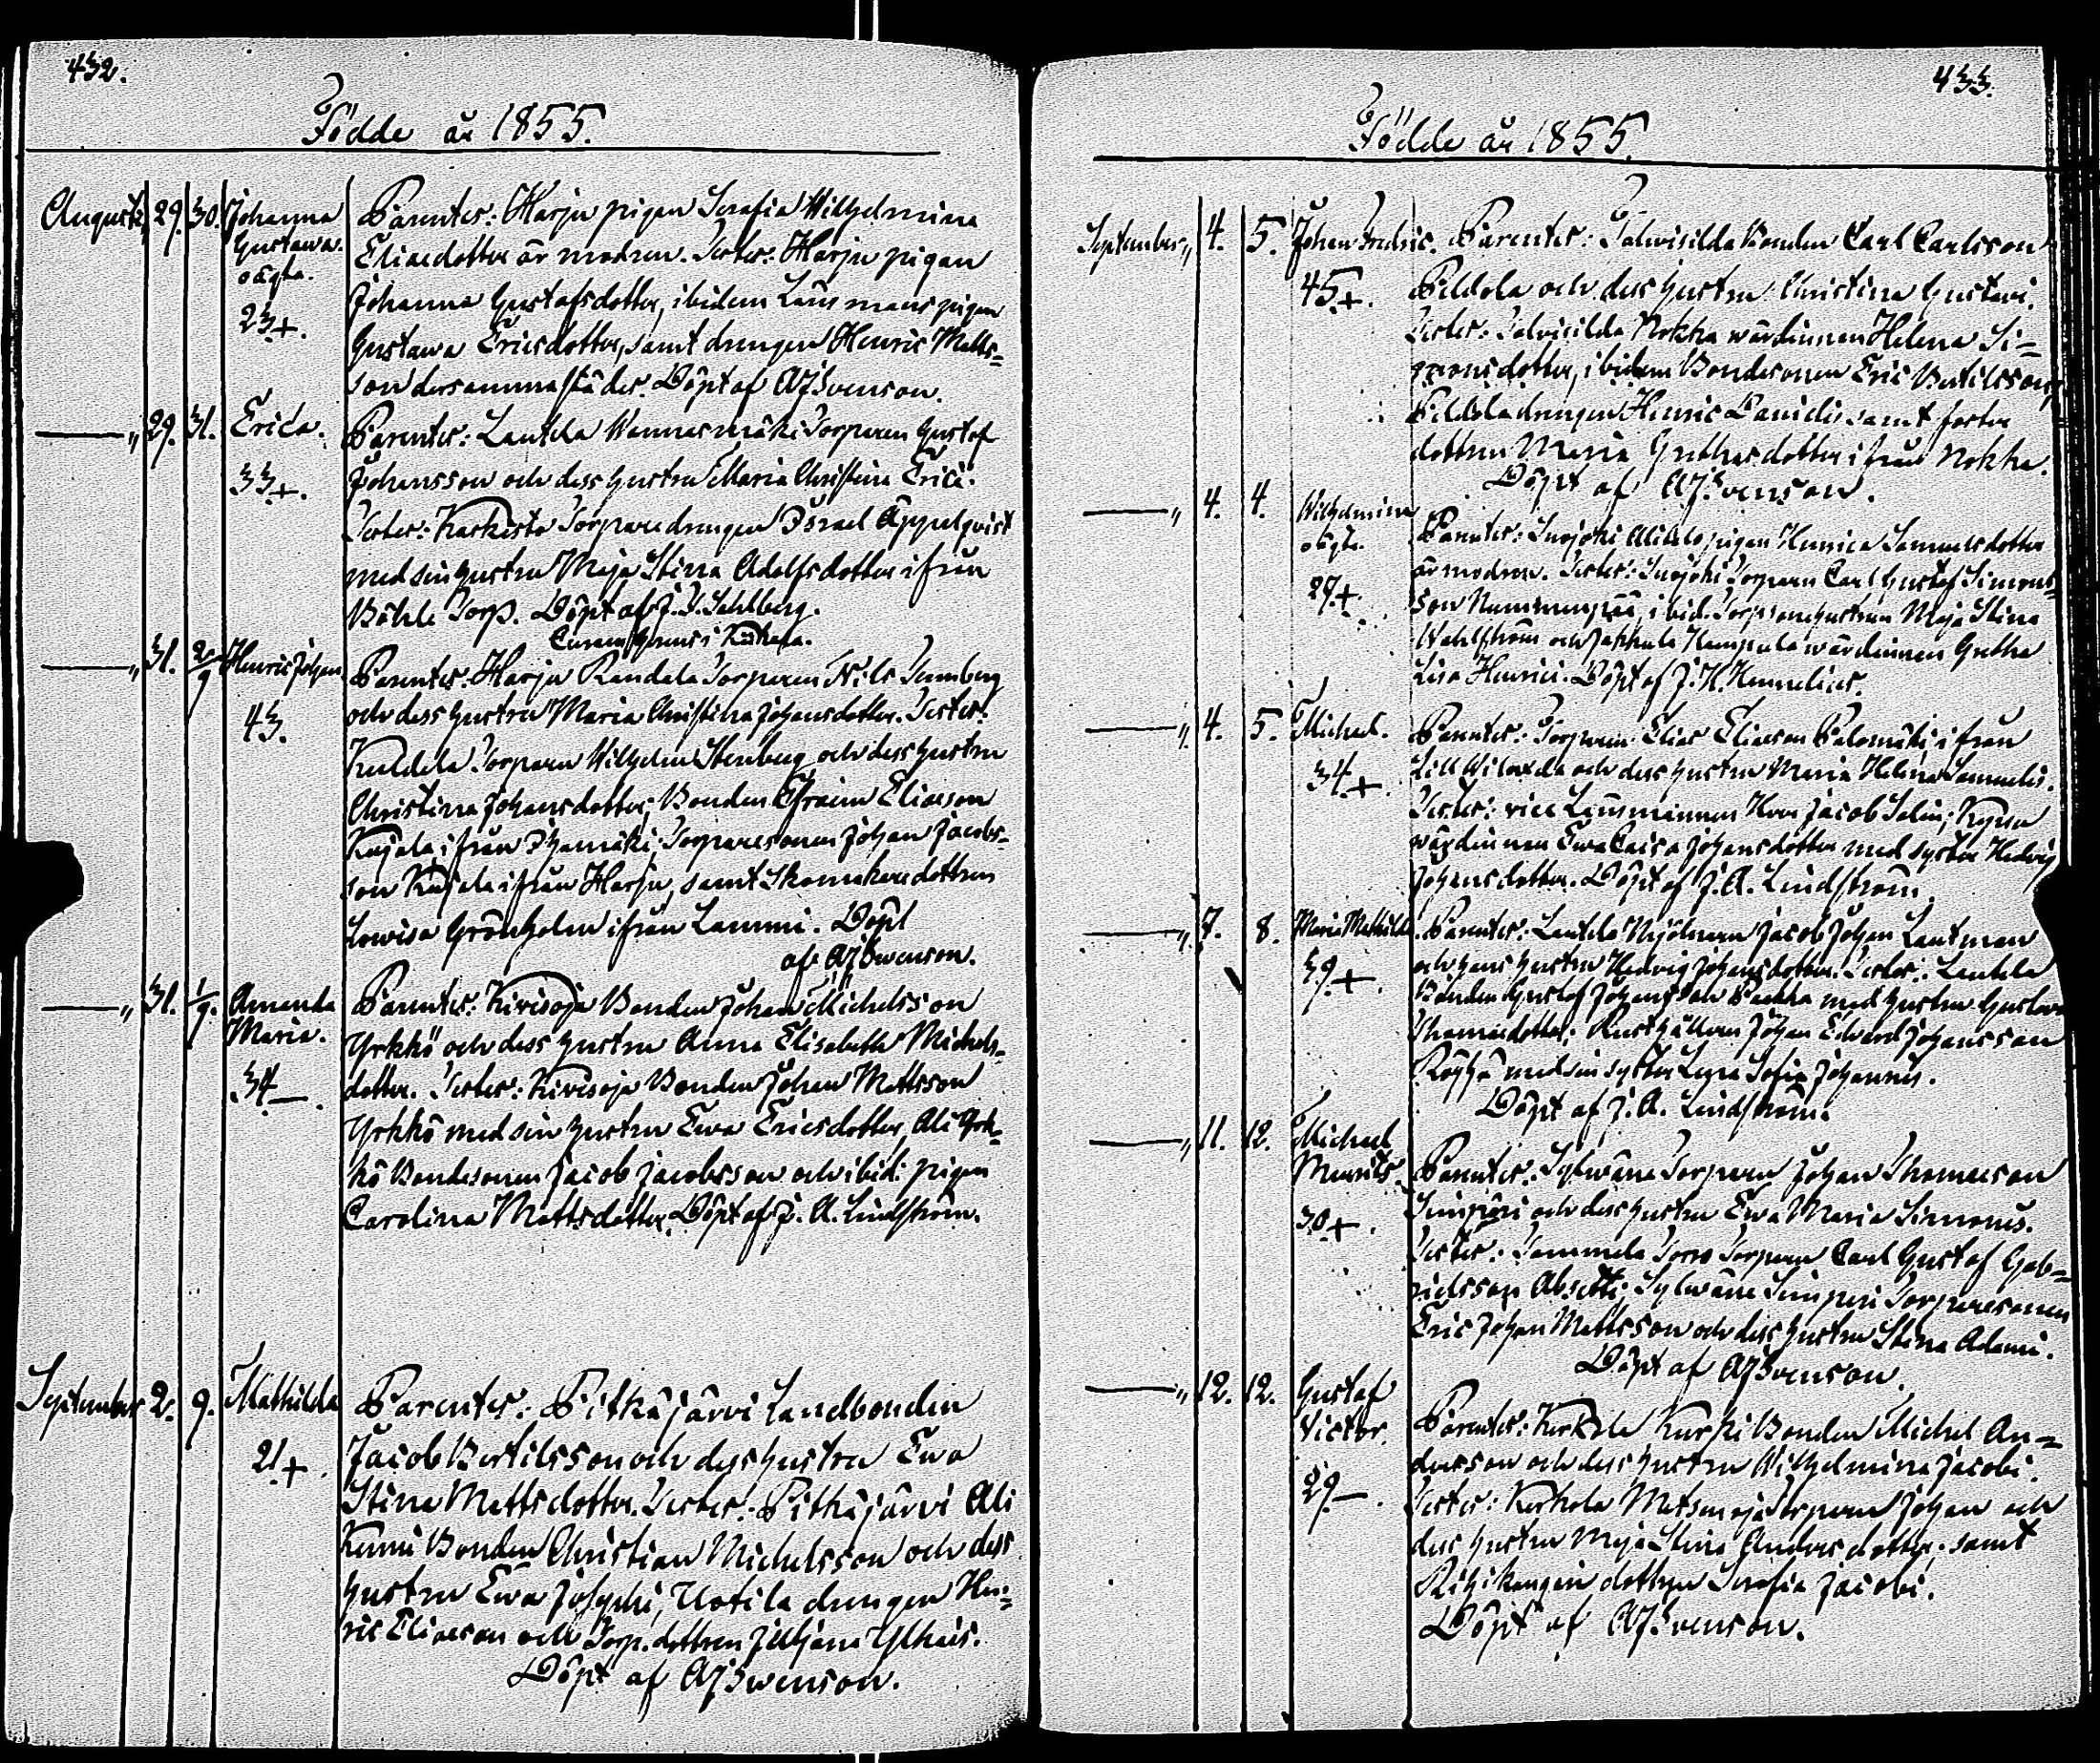 432.
Födde år 1855.
Augusti, 29. 30. Johanna Gustava. oägta. 23+.
Parentes: Harju pigan Serafia Wilhelmina
Eliaedotter är modren. Testes: Harju pigan
Johanna Gustafsdotter, ibidem Länsmans pigan
Gustava Ericsdotter, samt drengen Henric Matts=
son dersammastädes. Döpt af AJSvenson.
" 29. 31. Erica. 33+.
Parentes: Lautela Torparen Gustaf
Johansson och dess hustru Maria Christina Erici.
Testes: Karkisto Torparedrengen Israel Äppelqvist
med sin hustru Maja Stina Adolfsdotter ifrån
Böhle Torp. Döpt af J. J. Sahlberg.
i Kiikala.
" 31. 2/9 Henric Johan 43.
Parentes: Harju Randala Torparen Nils
och dess hustru Maria Christina Johansdotter. Testes:
Torparen Wilhelm Stenberg och dess hustru
Christina Johansdotter; Bonden Efraim Eliaeson
Kujala ifrån Torparesonen Johan Jacobs=
son Kujala ifrån Harju, samt Skomakaredottren
Lovisa Grönholm ifrån Lammi. Döpt
af AJSwenson.
" 31. 1/9. Amanda Maria. 34–.
Parentes: Kivisoja Bonden Johan Michelsson
Yrkkö och dess hustru Anna Elisabeth Michels=
dotter. Testes: Kivisoja Bonden Johan Mattsson
Yrkkö med sin hustru Ewa Ericsdotter, Ali Yrk=
kö Bondesonen Jacob Jacobsson och ibid: pigan
Carolina Mattsdotter. Döpt af J. A. Lindström.
September 2. 9. Mathilda 21+.
Parentes: Pitkäjärvi Landbonden
Jacob Bertilsson och dess hustru Ewa
Stina Mattsdotter. Testes: Pitkäjärvi Ali
Bonden Christian Michelsson och dess
hustru Ewa Josephi, Uotila drengen Hen=
ric Eliaeson och Torp. dottren Juljana
Döpt af AJSwenson.
433.
Födde år 1855.
September " 4. 5. Johan Fredric. 45+.
Parentes: Talvisilda Bonden Carl Carlsson
Pildola och dess hustru Christina Gustavi.
Testes: Talvisilda Nokka wärdinnan Helena Si=
monsdotter, ibidem Bondesonen Eric Bertilsson,
Pildola drengen Henric Danieli samt foster
dottren Maria Grethasdotter ifrån Nokka.
Döpt af AJSvenson.
" 4. 4. Wilhelmina oägta. 27+.
Parentes: Suojoki Alitalo pigan Henrica Samuelsdotter
är modren. Testes: Suojoki Torparen Carl Gustaf Simons=
son Nummenpää, ibid. Torparehustrun Maja Stina
Wahlström och wärdinnan Gretha
Lisa Henrici. Döpt af J. H.
" 4. 5. Michael. 34+.
Parentes: Torparen Elias Eliaeson Palomäki ifrån
och dess hustru Maria Helena Samuelis.
Testes: vice Länsmannen Herr Jacob Salin;
wärdinnan Ewa Caisa Johansdotter med syster Hedvig
Johansdotter. Döpt af J. A. Lindström.
" 7. 8. Maria Mathilda. 39+.
Parentes: Lautela Mjölnaren Jacob Johan Lautman
och hans hustru Hedvig Johansdotter. Testes: Lautela
Bonden Gustaf Johansson med hustru Gustava
Thomasdotter; Rusthållaren Johan Edvard Johansson
med sin syster Lena Sofia Johannis.
Döpt af J. A. Lindström.
" 11. 12. Michael Maurits. 30+.
Parentes: Sylwäne Torparen Johan Thomaeson
Simperi och dess hustru Ewa Maria Simonis.
Testes: Tammela Torro Torparen Carl Gustaf Gab=
rielsson Absetti; Sylwäne Simperi Torparesonen
Eric Johan Mattsson och dess hustru Stina Adami.
Döpt af AJSvenson.
" 12. 12. Gustaf Victor. 29–.
Parentes: Kerkola Kurki Bonden Michel An=
dersson och dess hustru Wilhelmina Jacobi.
Testes: Kerkola Metsenoja Torparen Johan och
dess hustru Maja Stina Andersdotter, samt
dottren Serafia Jacobi.
Döpt af AJSvenson.